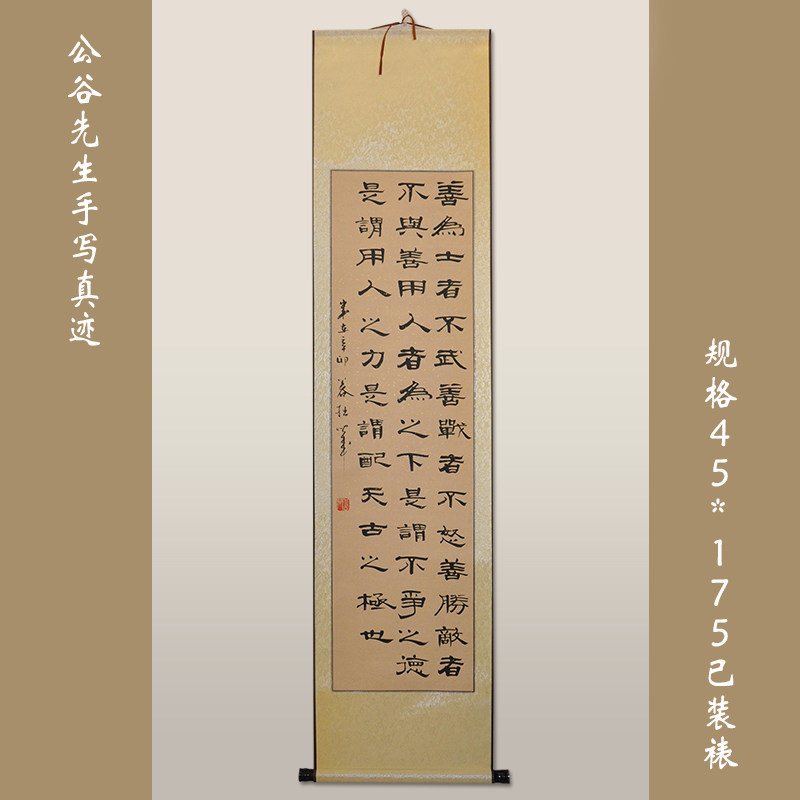 公谷先生手写真迹
善為士者不武善戰者不怒善勝敵者
不與善用人者為之下是謂不爭之德
是謂用人之力是謂配天古之極也
歲在辛卯 拙筆
规格45*175已装裱